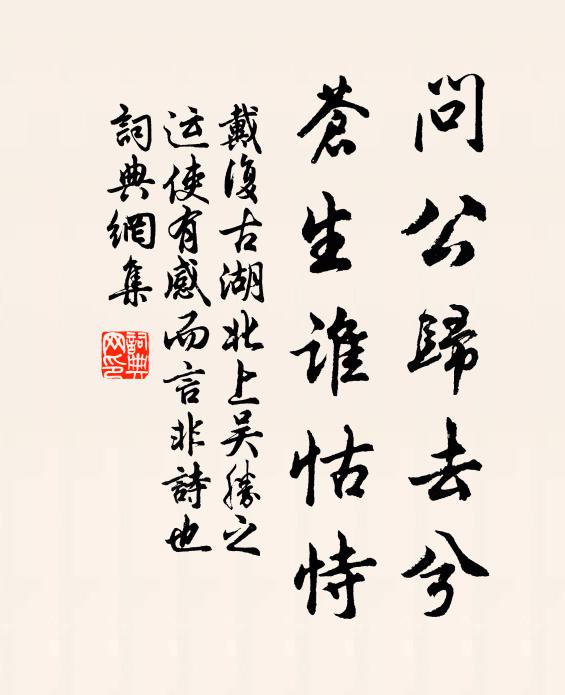 問公歸去兮
蒼生誰怙恃
戴復古湖北上吴勝之
运使有感而言非詩也
詞典網集
詞典網印